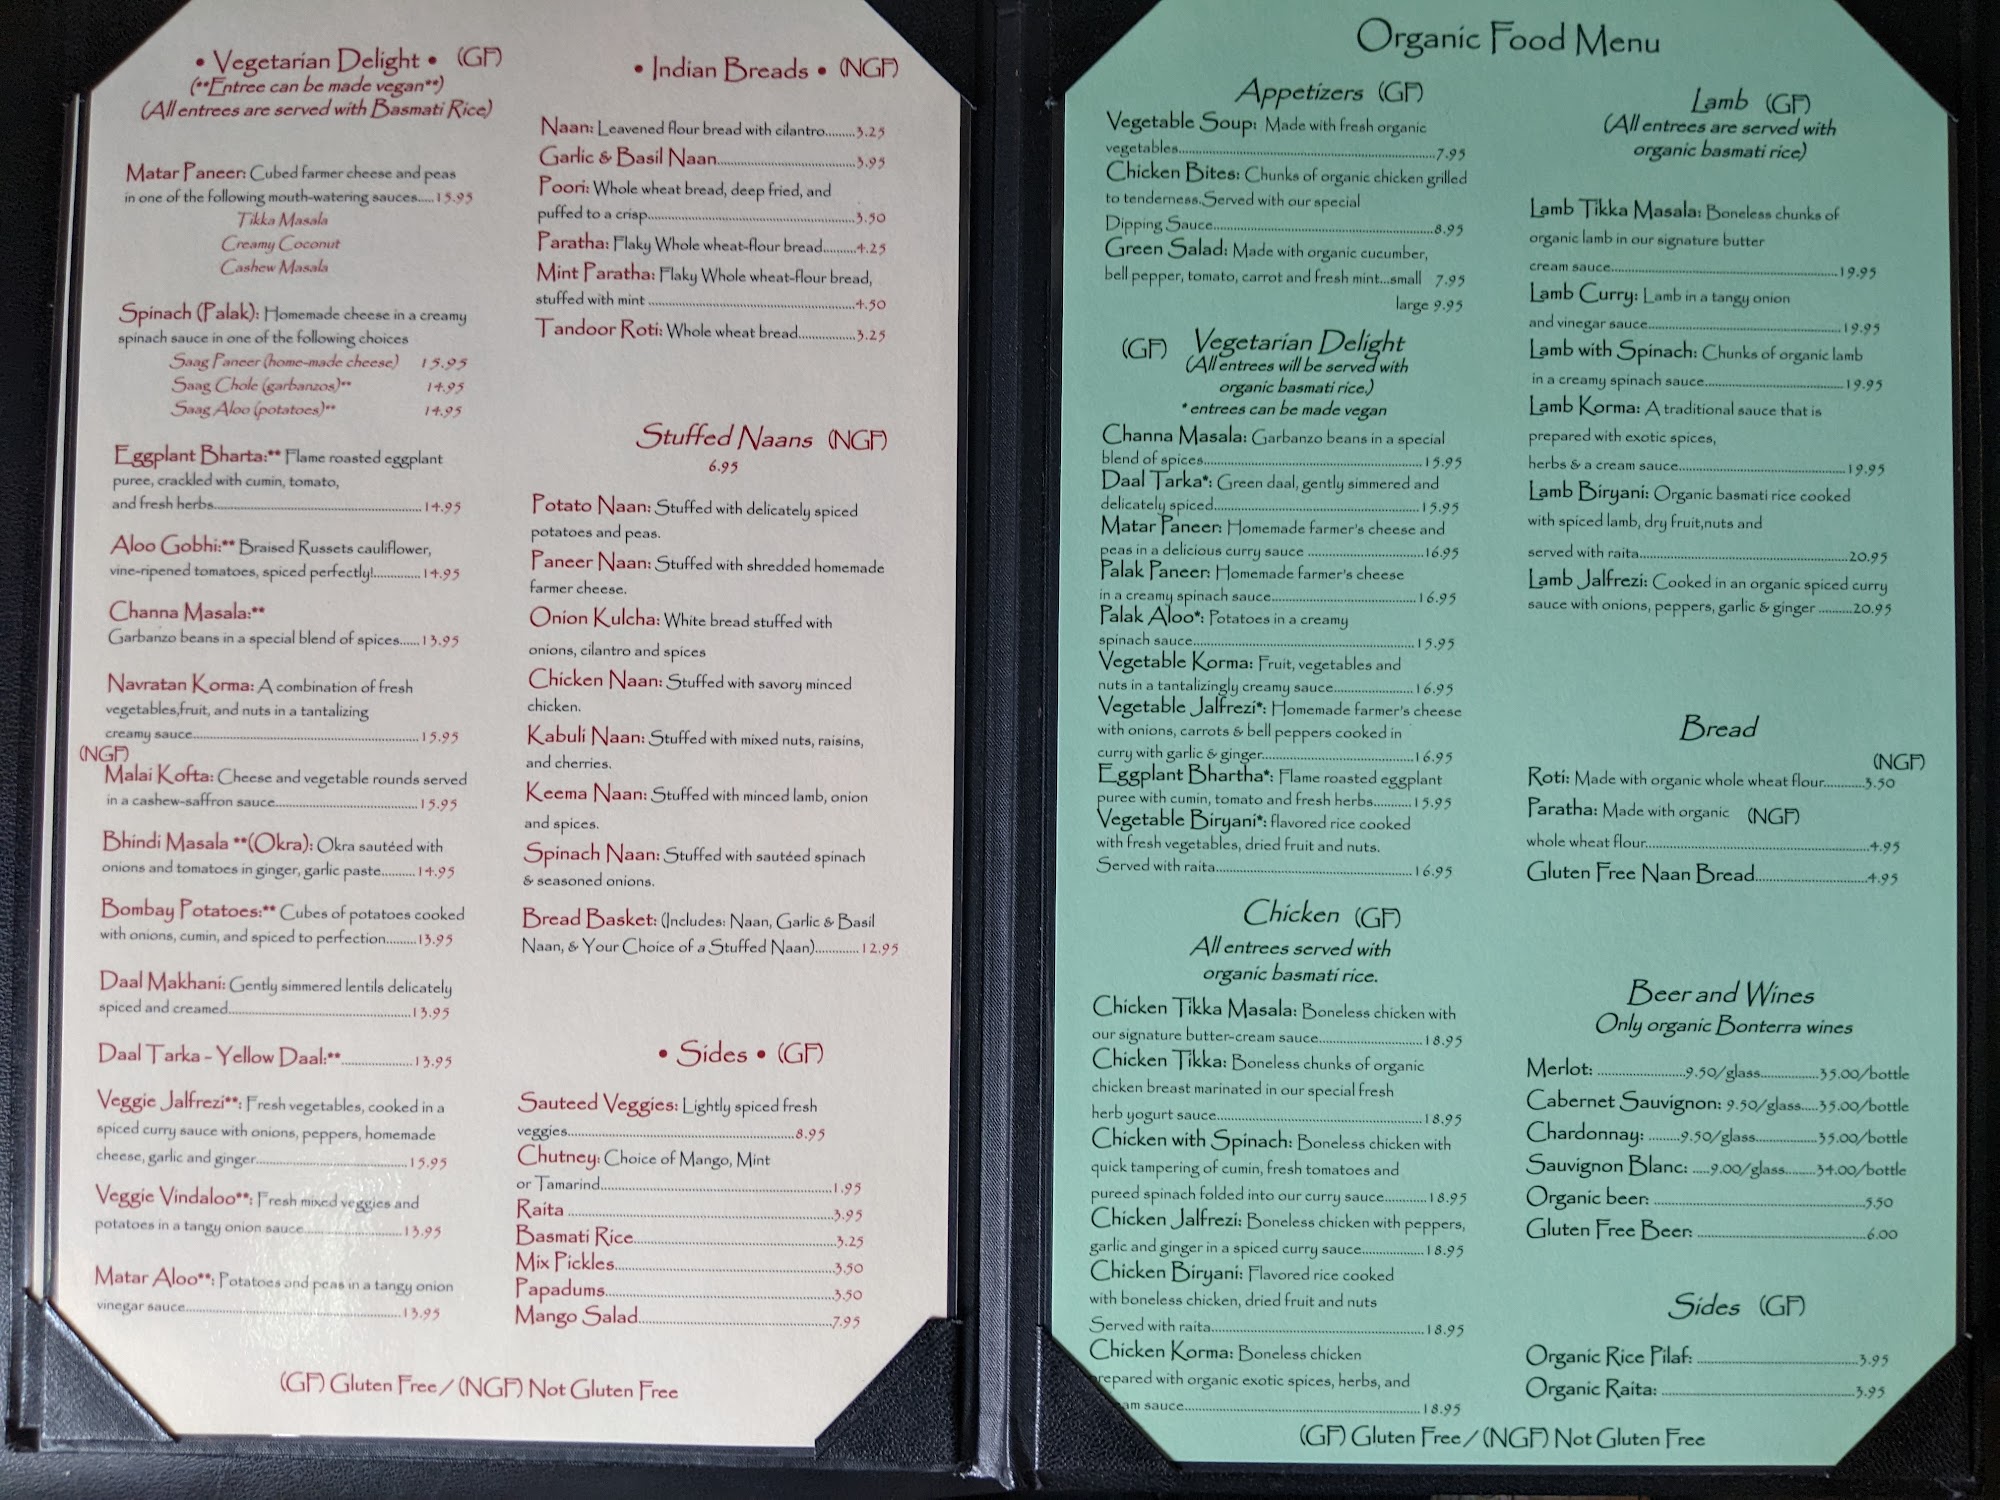 • Vegetarian Delight • (GF)
(**Entree can be made vegan**)
(All entrees are served with Basmati Rice)
Matar Paneer: Cubed farmer cheese and peas
in one of the following mouth-watering sauces.....15.95
Tikka Masala
Creamy Coconut
Cashew Masala
Spinach (Palak): Homemade cheese in a creamy
spinach sauce in one of the following choices
Saag Paneer (home-made cheese) 15.95
Saag Chole (garbanzos)** 14.95
Saag Aloo (potatoes)** 14.95
Eggplant Bharta:** Flame roasted eggplant
puree, crackled with cumin, tomato,
and fresh herbs.....14.95
Aloo Gobhi:** Braised Russets cauliflower,
vine-ripened tomatoes, spiced perfectly!.....14.95
Channa Masala:**
Garbanzo beans in a special blend of spices.....13.95
Navratan Korma: A combination of fresh
vegetables,fruit, and nuts in a tantalizing
creamy sauce.....15.95
(NGF)
Malai Kofta: Cheese and vegetable rounds served
in a cashew-saffron sauce.....15.95
Bhindi Masala **(Okra): Okra sautéed with
onions and tomatoes in ginger, garlic paste.....14.95
Bombay Potatoes:** Cubes of potatoes cooked
with onions, cumin, and spiced to perfection.....13.95
Daal Makhani: Gently simmered lentils delicately
spiced and creamed.....13.95
Daal Tarka - Yellow Daal:**.....13.95
Veggie Jalfrezi**: Fresh vegetables, cooked in a
spiced curry sauce with onions, peppers, homemade
cheese, garlic and ginger.....15.95
Veggie Vindaloo**: Fresh mixed veggies and
potatoes in a tangy onion sauce.....13.95
Matar Aloo**: Potatoes and peas in a tangy onion
vinegar sauce.....13.95
• Indian Breads • (NGF)
Naan: Leavened flour bread with cilantro.....3.25
Garlic & Basil Naan.....3.95
Poori: Whole wheat bread, deep fried, and
puffed to a crisp.....3.50
Paratha: Flaky Whole wheat-flour bread.....4.25
Mint Paratha: Flaky Whole wheat-flour bread,
stuffed with mint .....4.50
Tandoor Roti: Whole wheat bread.....3.25
Stuffed Naans (NGF)
6.95
Potato Naan: Stuffed with delicately spiced
potatoes and peas.
Paneer Naan: Stuffed with shredded homemade
farmer cheese.
Onion Kulcha: White bread stuffed with
onions, cilantro and spices
Chicken Naan: Stuffed with savory minced
chicken.
Kabuli Naan: Stuffed with mixed nuts, raisins,
and cherries.
Keema Naan: Stuffed with minced lamb, onion
and spices.
Spinach Naan: Stuffed with sautéed spinach
& seasoned onions.
Bread Basket: (Includes: Naan, Garlic & Basil
Naan, & Your Choice of a Stuffed Naan).....12.95
• Sides • (GF)
Sauteed Veggies: Lightly spiced fresh
veggies.....8.95
Chutney: Choice of Mango, Mint
or Tamarind.....1.95
Raita .....3.95
Basmati Rice.....3.25
Mix Pickles.....3.50
Papadums.....3.50
Mango Salad.....7.95
(GF) Gluten Free / (NGF) Not Gluten Free
Organic Food Menu
Appetizers (GF)
Vegetable Soup: Made with fresh organic
vegetables.....7.95
Chicken Bites: Chunks of organic chicken grilled
to tenderness.Served with our special
Dipping Sauce.....8.95
Green Salad: Made with organic cucumber,
bell pepper, tomato, carrot and fresh mint...small 7.95
large 9.95
(GF) Vegetarian Delight
(All entrees will be served with
organic basmati rice.)
* entrees can be made vegan
Channa Masala: Garbanzo beans in a special
blend of spices.....15.95
Daal Tarka*: Green daal, gently simmered and
delicately spiced.....15.95
Matar Paneer: Homemade farmer's cheese and
peas in a delicious curry sauce .....16.95
Palak Paneer: Homemade farmer's cheese
in a creamy spinach sauce.....16.95
Palak Aloo*: Potatoes in a creamy
spinach sauce.....15.95
Vegetable Korma: Fruit, vegetables and
nuts in a tantalizingly creamy sauce.....16.95
Vegetable Jalfrezi*: Homemade farmer's cheese
with onions, carrots & bell peppers cooked in
curry with garlic & ginger.....16.95
Eggplant Bhartha*: Flame roasted eggplant
puree with cumin, tomato and fresh herbs.....15.95
Vegetable Biryani*: flavored rice cooked
with fresh vegetables, dried fruit and nuts.
Served with raita.....16.95
Chicken (GF)
All entrees served with
organic basmati rice.
Chicken Tikka Masala: Boneless chicken with
our signature butter-cream sauce.....18.95
Chicken Tikka: Boneless chunks of organic
chicken breast marinated in our special fresh
herb yogurt sauce.....18.95
Chicken with Spinach: Boneless chicken with
quick tampering of cumin, fresh tomatoes and
pureed spinach folded into our curry sauce.....18.95
Chicken Jalfrezi: Boneless chicken with peppers,
garlic and ginger in a spiced curry sauce.....18.95
Chicken Biryani: Flavored rice cooked
with boneless chicken, dried fruit and nuts
Served with raita.....18.95
Chicken Korma: Boneless chicken
repared with organic exotic spices, herbs, and
am sauce.....18.95
Lamb (GF)
(All entrees are served with
organic basmati rice)
Lamb Tikka Masala: Boneless chunks of
organic lamb in our signature butter
cream sauce.....19.95
Lamb Curry: Lamb in a tangy onion
and vinegar sauce.....19.95
Lamb with Spinach: Chunks of organic lamb
in a creamy spinach sauce.....19.95
Lamb Korma: A traditional sauce that is
prepared with exotic spices,
herbs & a cream sauce.....19.95
Lamb Biryani: Organic basmati rice cooked
with spiced lamb, dry fruit,nuts and
served with raita.....20.95
Lamb Jalfrezi: Cooked in an organic spiced curry
sauce with onions, peppers, garlic & ginger .....20.95
Bread
(NGF)
Roti: Made with organic whole wheat flour.....3.50
Paratha: Made with organic (NGF)
whole wheat flour.....4.95
Gluten Free Naan Bread.....4.95
Beer and Wines
Only organic Bonterra wines
Merlot: .....9.50/glass.....35.00/bottle
Cabernet Sauvignon: 9.50/glass.....35.00/bottle
Chardonnay: .....9.50/glass.....35.00/bottle
Sauvignon Blanc: .....9.00/glass.....34.00/bottle
Organic beer: .....5.50
Gluten Free Beer: .....6.00
Sides (GF)
Organic Rice Pilaf: .....3.95
Organic Raita: .....3.95
(GF) Gluten Free / (NGF) Not Gluten Free